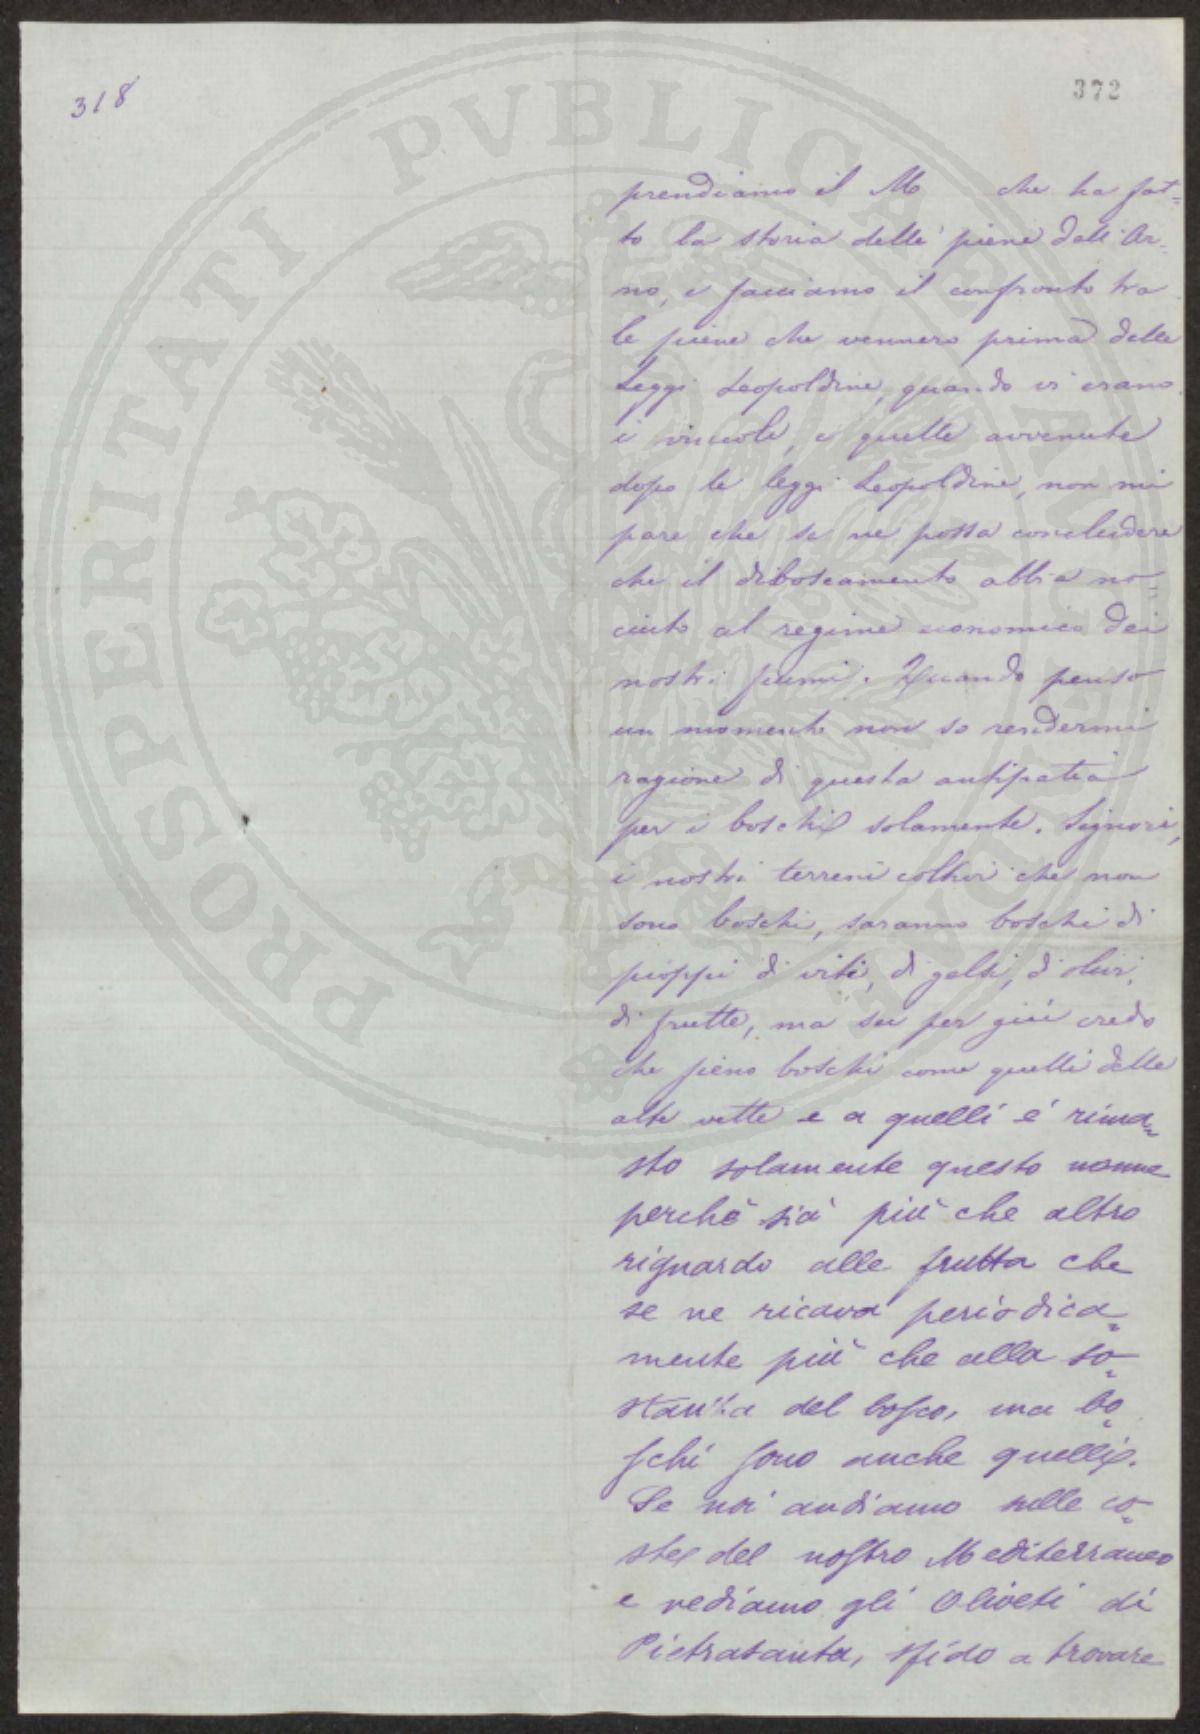 318
372
prendiamo il M che ha fat=
to la storia delle piene dell'Ar=
no, e facciamo il confronto tra
le piene che vennero prima delle
Leggi Leopoldine, quando vi erano
i vincoli, e quelle avvenute
dopo le leggi Leopoldine, non mi
pare che se ne possa concludere
che il diboscamento abbia no=
ciuto al regime economico dei
nostri fiumi. Quando penso
un momento non so rendermi
ragione di questa antipatia
per i boschi solamente. Signori,
i nostri terreni coltivi che non
sono boschi, saranno boschi di
pioppi di viti, di gelsi, di olivi,
di frutte, ma su per giù credo
che sieno boschi come quelli delle
alte vette e a quelli è rima=
sto solamente questo nome
perchè si à più che altro
riguardo alle frutta che
se ne ricava periodica=
mente più che alla so=
stanza del bosco, ma bo=
schi sono anche quelli.
Se noi andiamo nelle co=
ste del nostro Mediterraneo
e vediamo gli Oliveti di
Pietrasanta, sfido a trovare
PROSPERITATI PVBLICAE AVGENDAE